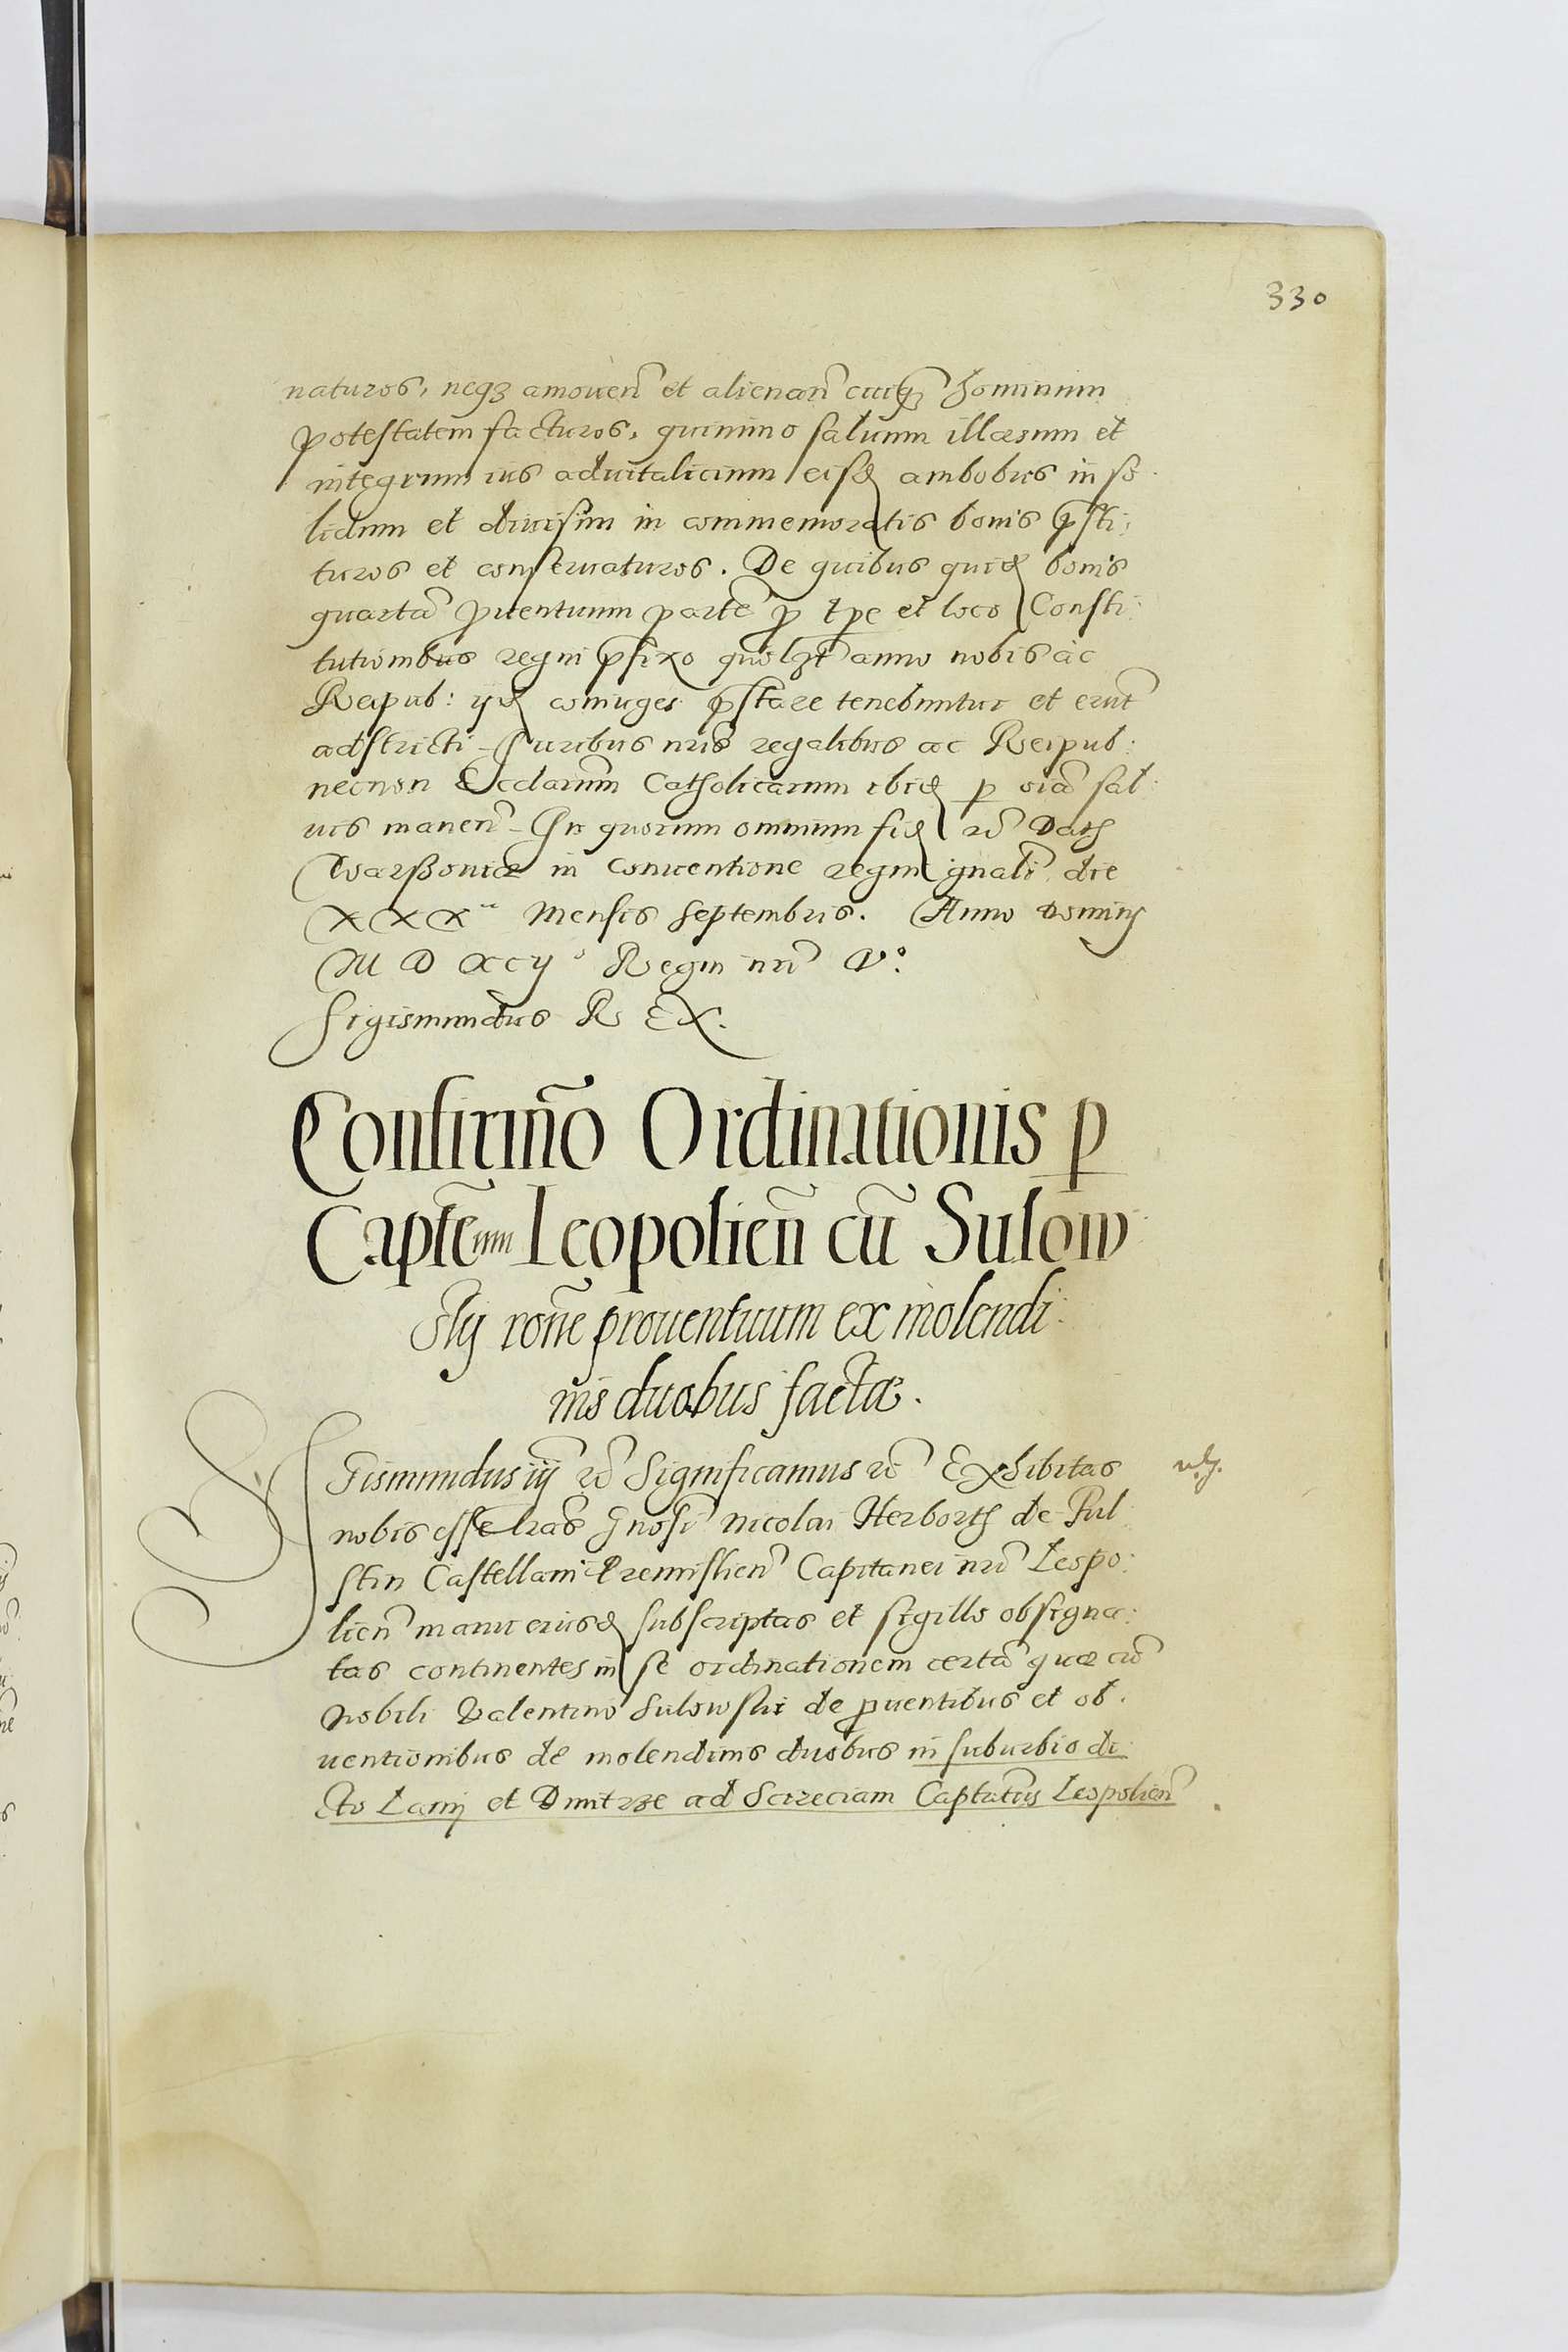 330
naturos, neqꝫ amouen̄ et alienan̄ cuiqꝫ hominum
potestatem facturos, quinimo saluum illæsum et
integrum ius aduitalicium eisđ ambobus in so
lidum et diuisim in commemoratis bonis p̄sti:
turos et conseruaturos. De quibus quiđ bonis
quartā ꝓuentuum partē ꝓ tp̄e et loco Consti:
tutionibus regni p̄fixo quolꝫt anno nobis ac
Reipub: ijđ coniuges p̄stare tenebuntur et erūt
adstricti Iuribus nr̄is regalibus ac Reipub:
necnon Ecclarūm Catholicarum ibiđ ꝑ oīa sal:
uis manen̄ In quorum omnium fiđ rc̄ Dat
Warssouiæ in Conuentione regni gn̄ali die
XXX Mensis Septembris. Anno Domini
M D XCij° Regni nr̄i V°.
Sigismundus R EX.
Confirmão Ordinationis ꝑ
Captēum Leopolien̄ cū Sulow
skij rōne prouentuum ex molendi:
nis duobus factæ.
SIGismundus iij rc̄ Significamus rc̄ Exhibitas
nobis esse lr̄as Gn̄osi Nicolai Herborth de Ful
stin Castellani Premislien̄ Capitanei nr̄i Leopo:
lien̄ manu eiusđ subscriptas et sigillo obsigna:
tas continentes in se ordinationem certā quæ cū
Nobili Valentino Sulowski de ꝓuentibus et ob
uentionibus de molendinis duobus in suburbio di
cto Lanij et Dmitrze ad Screciam Captūtus Leopolien̄